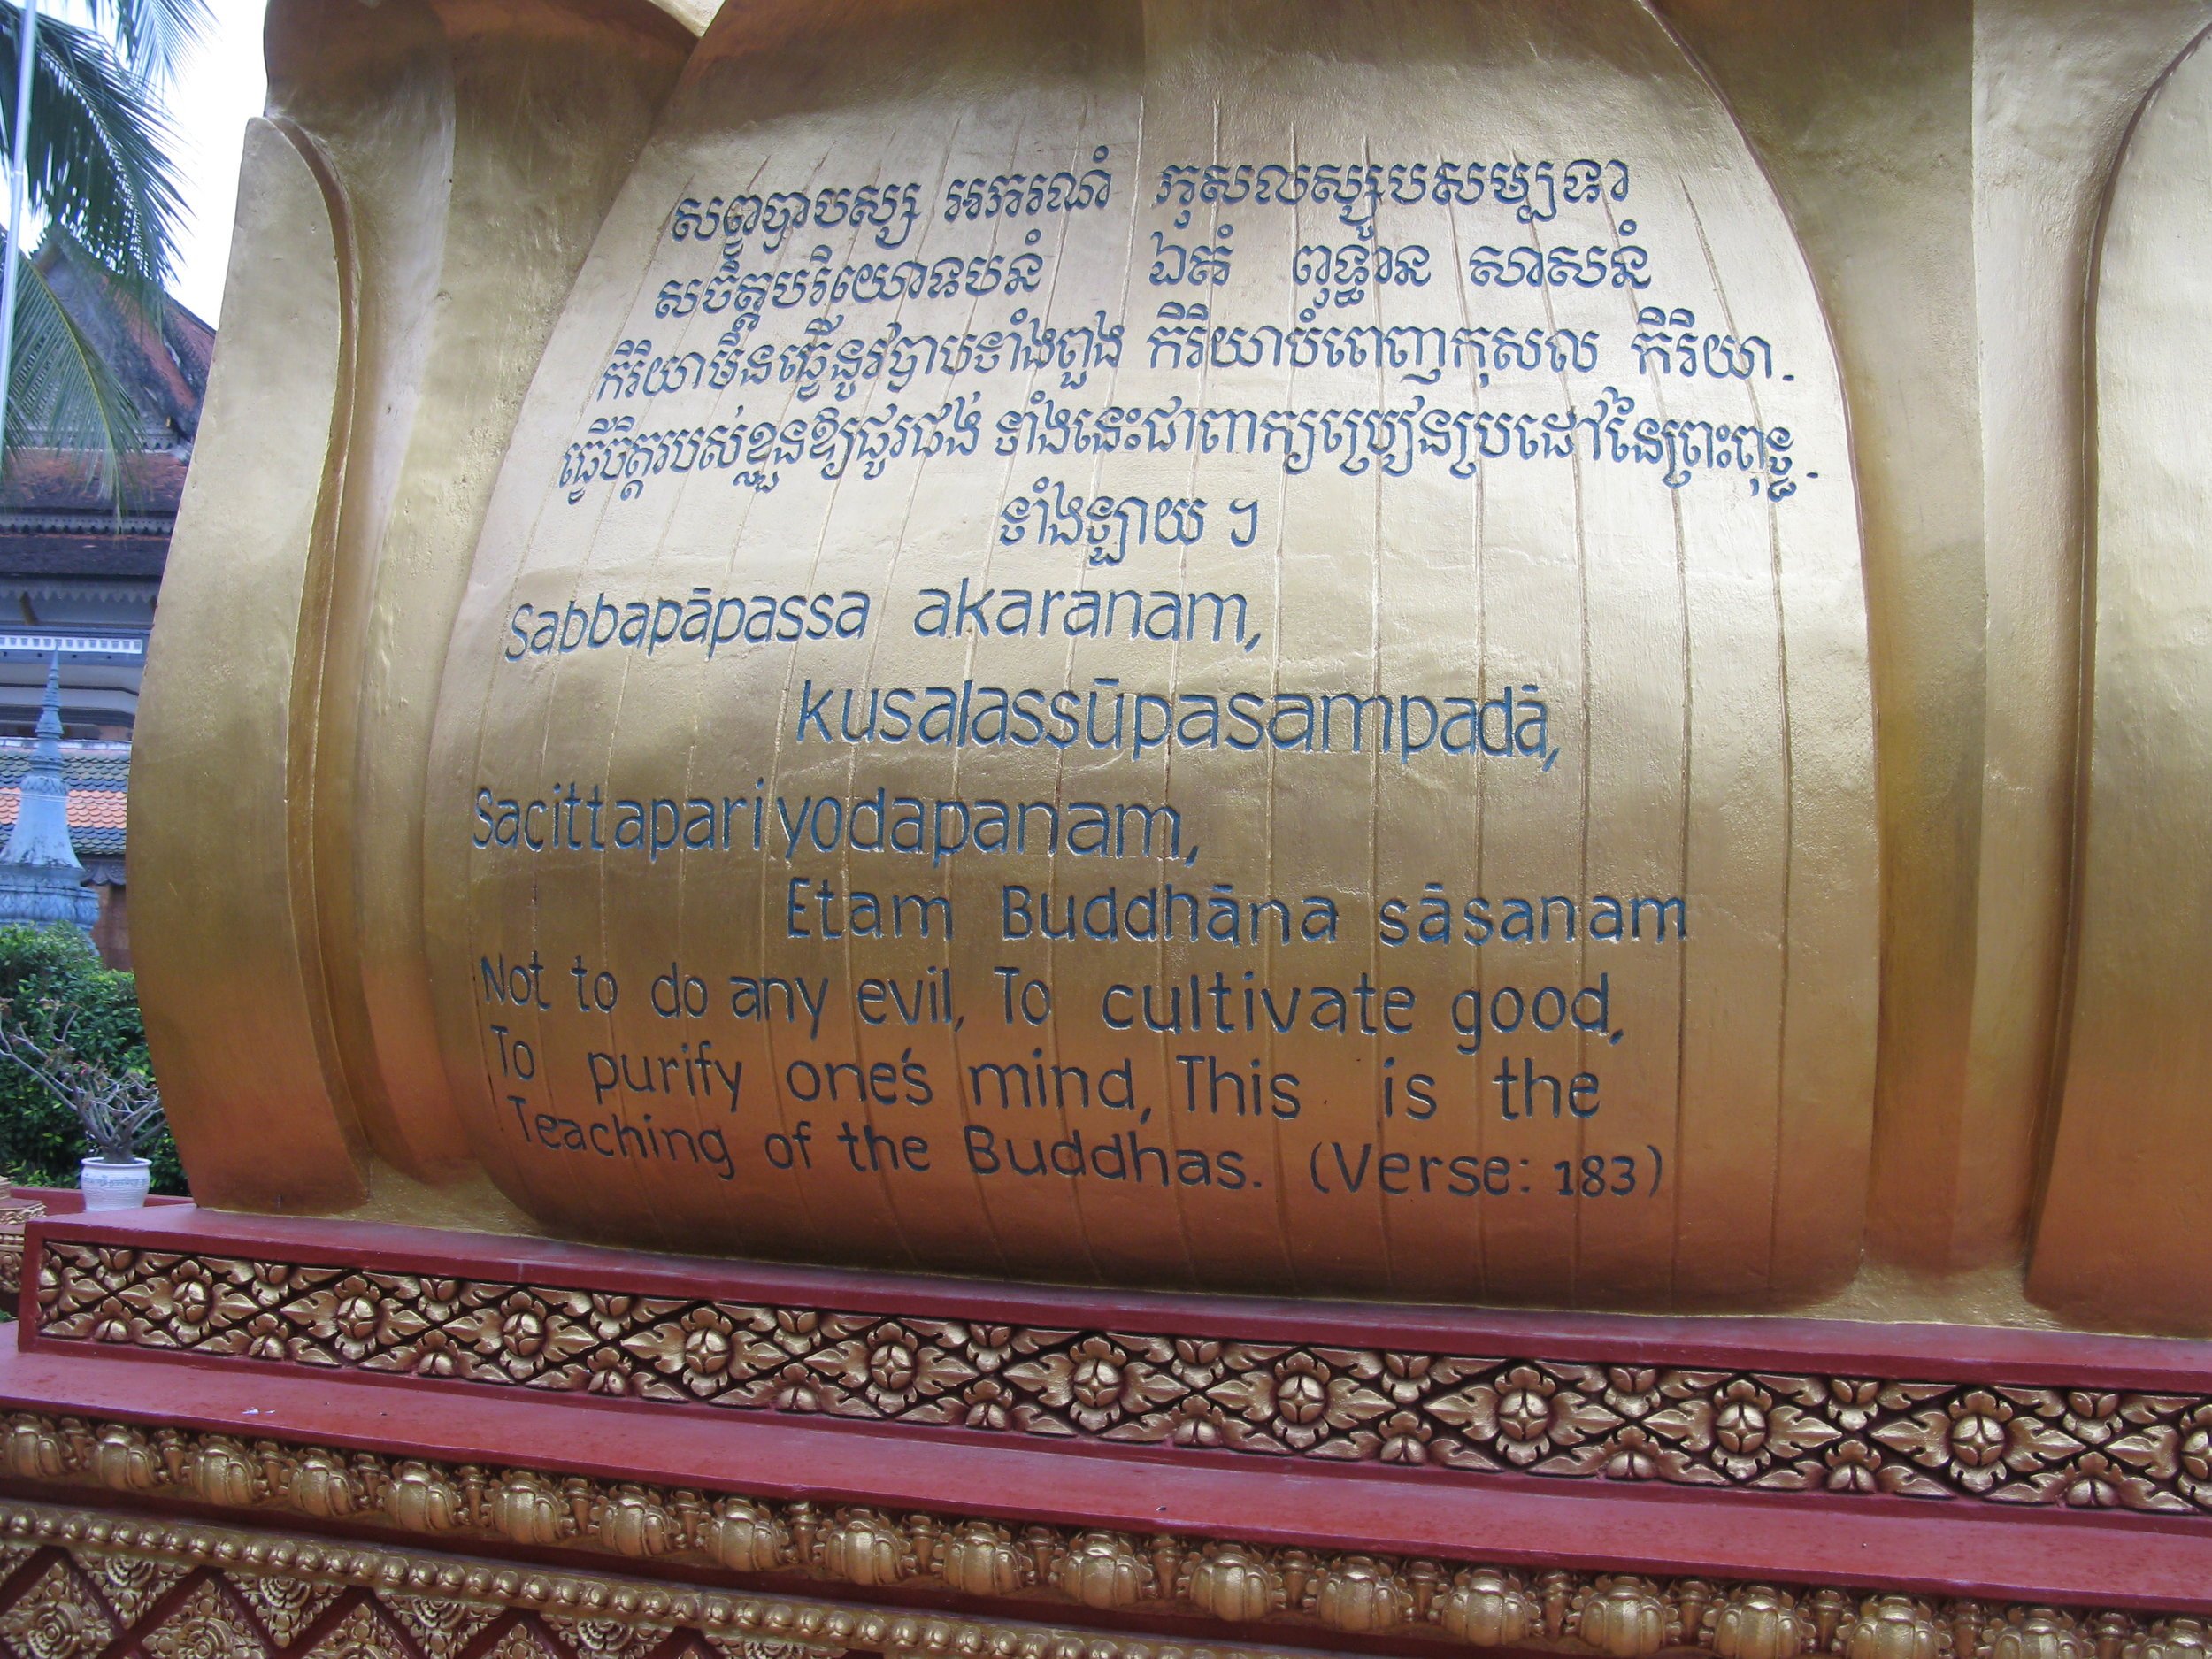 សព្វប្បាបស្ស អករណំ កុសលស្សូបសម្បទា
សចិត្តបរិយោទបនំ ឯតំ ពុទ្ធាន សាសនំ
កិរិយាមិនធ្វើនូវប្បាបទាំងពួង កិរិយាបំពេញកុសល កិរិយា-
ធ្វើចិត្តរបស់ខ្លួនឱ្យផូរផង់ ទាំងនេះជាពាក្យប្រៀនប្រដៅនៃព្រះពុទ្ធ-
ទាំងឡាយ ។
Sabbapāpassa akaranam,
kusalassūpasampadā,
Sacittapariyodapanam,
Etam Buddhāna sāsanam
Not to do any evil, To cultivate good,
To purify one's mind, This is the
Teaching of the Buddhas. (Verse: 183)